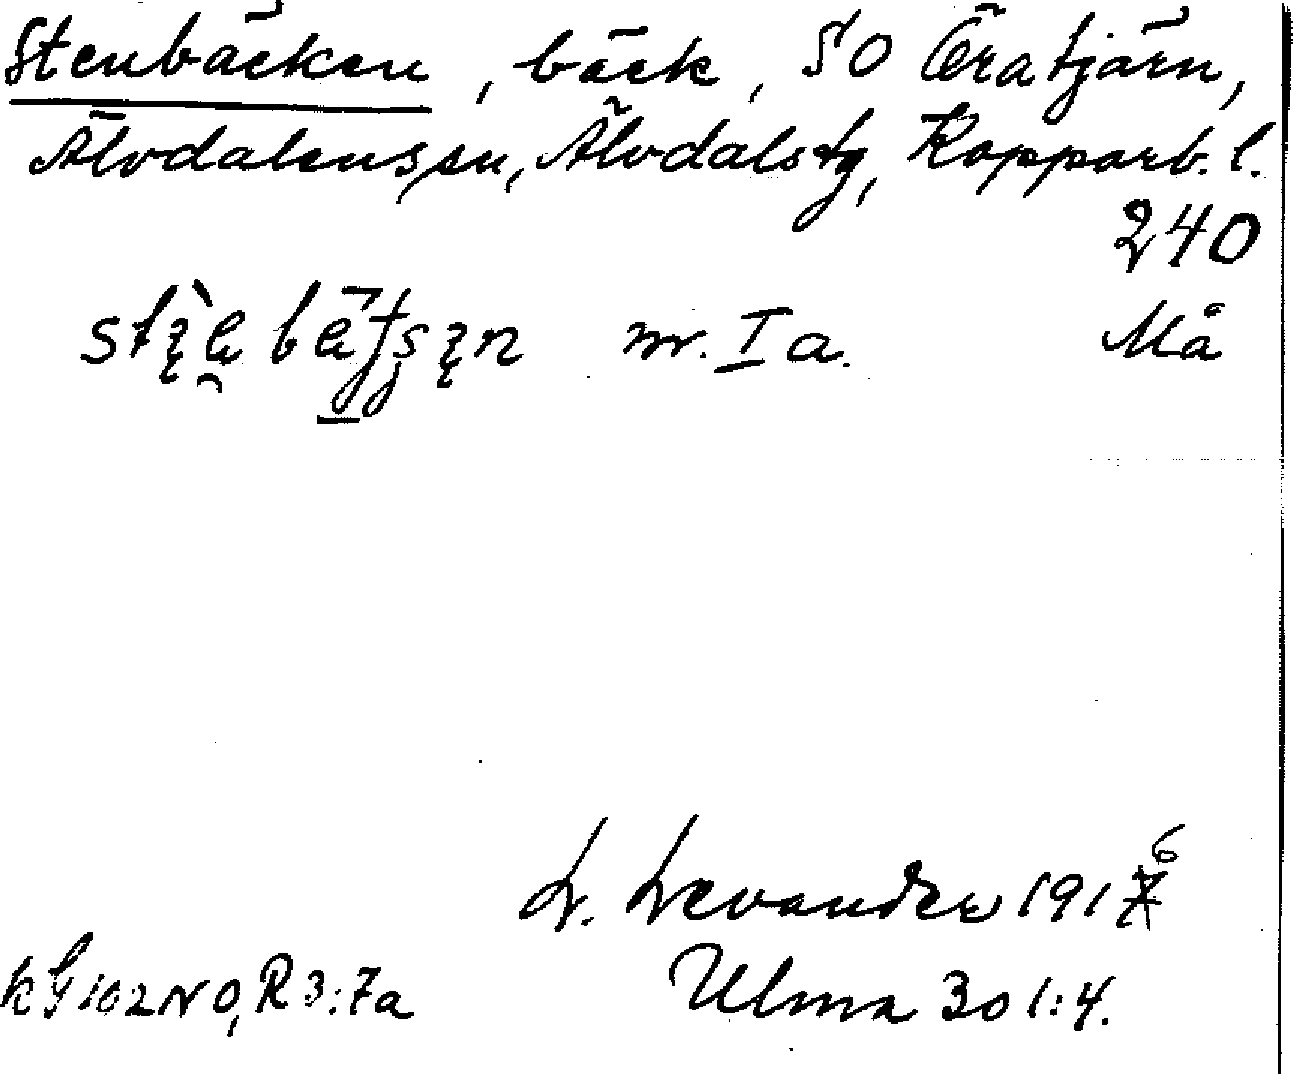 Stenbäcken, bäck, SO Öratjärn,
Älvdalens sn, Älvdals tg, Kopparb. l.
240
m. I a. Må
L. Levander 1916
kG 102 NO, R 3:7a Ulma 301:4.